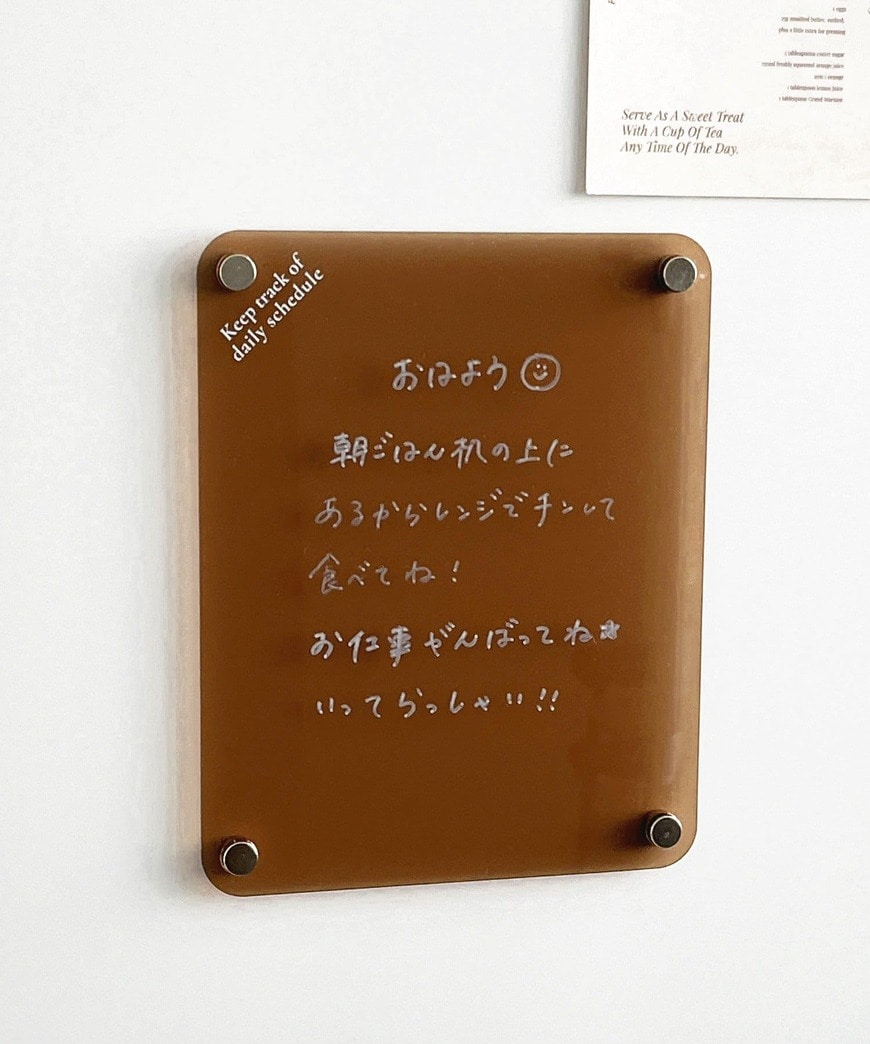 1 eggs
125 unsalted butter, melted,
plus a little extra for greasing
2 tablespoons caster sugar
zest 1 orange
1 tablespoon lemon juice
1 tablespoon Grand Marnier
Serve As A Sweet Treat
With A Cup Of Tea
Any Time Of The Day.
Keep track of
daily schedule
おはよう
朝ごはん机の上に
あるからレンジでチンして
食べてね!
お仕事がんばってね☆
いってらっしゃい!!